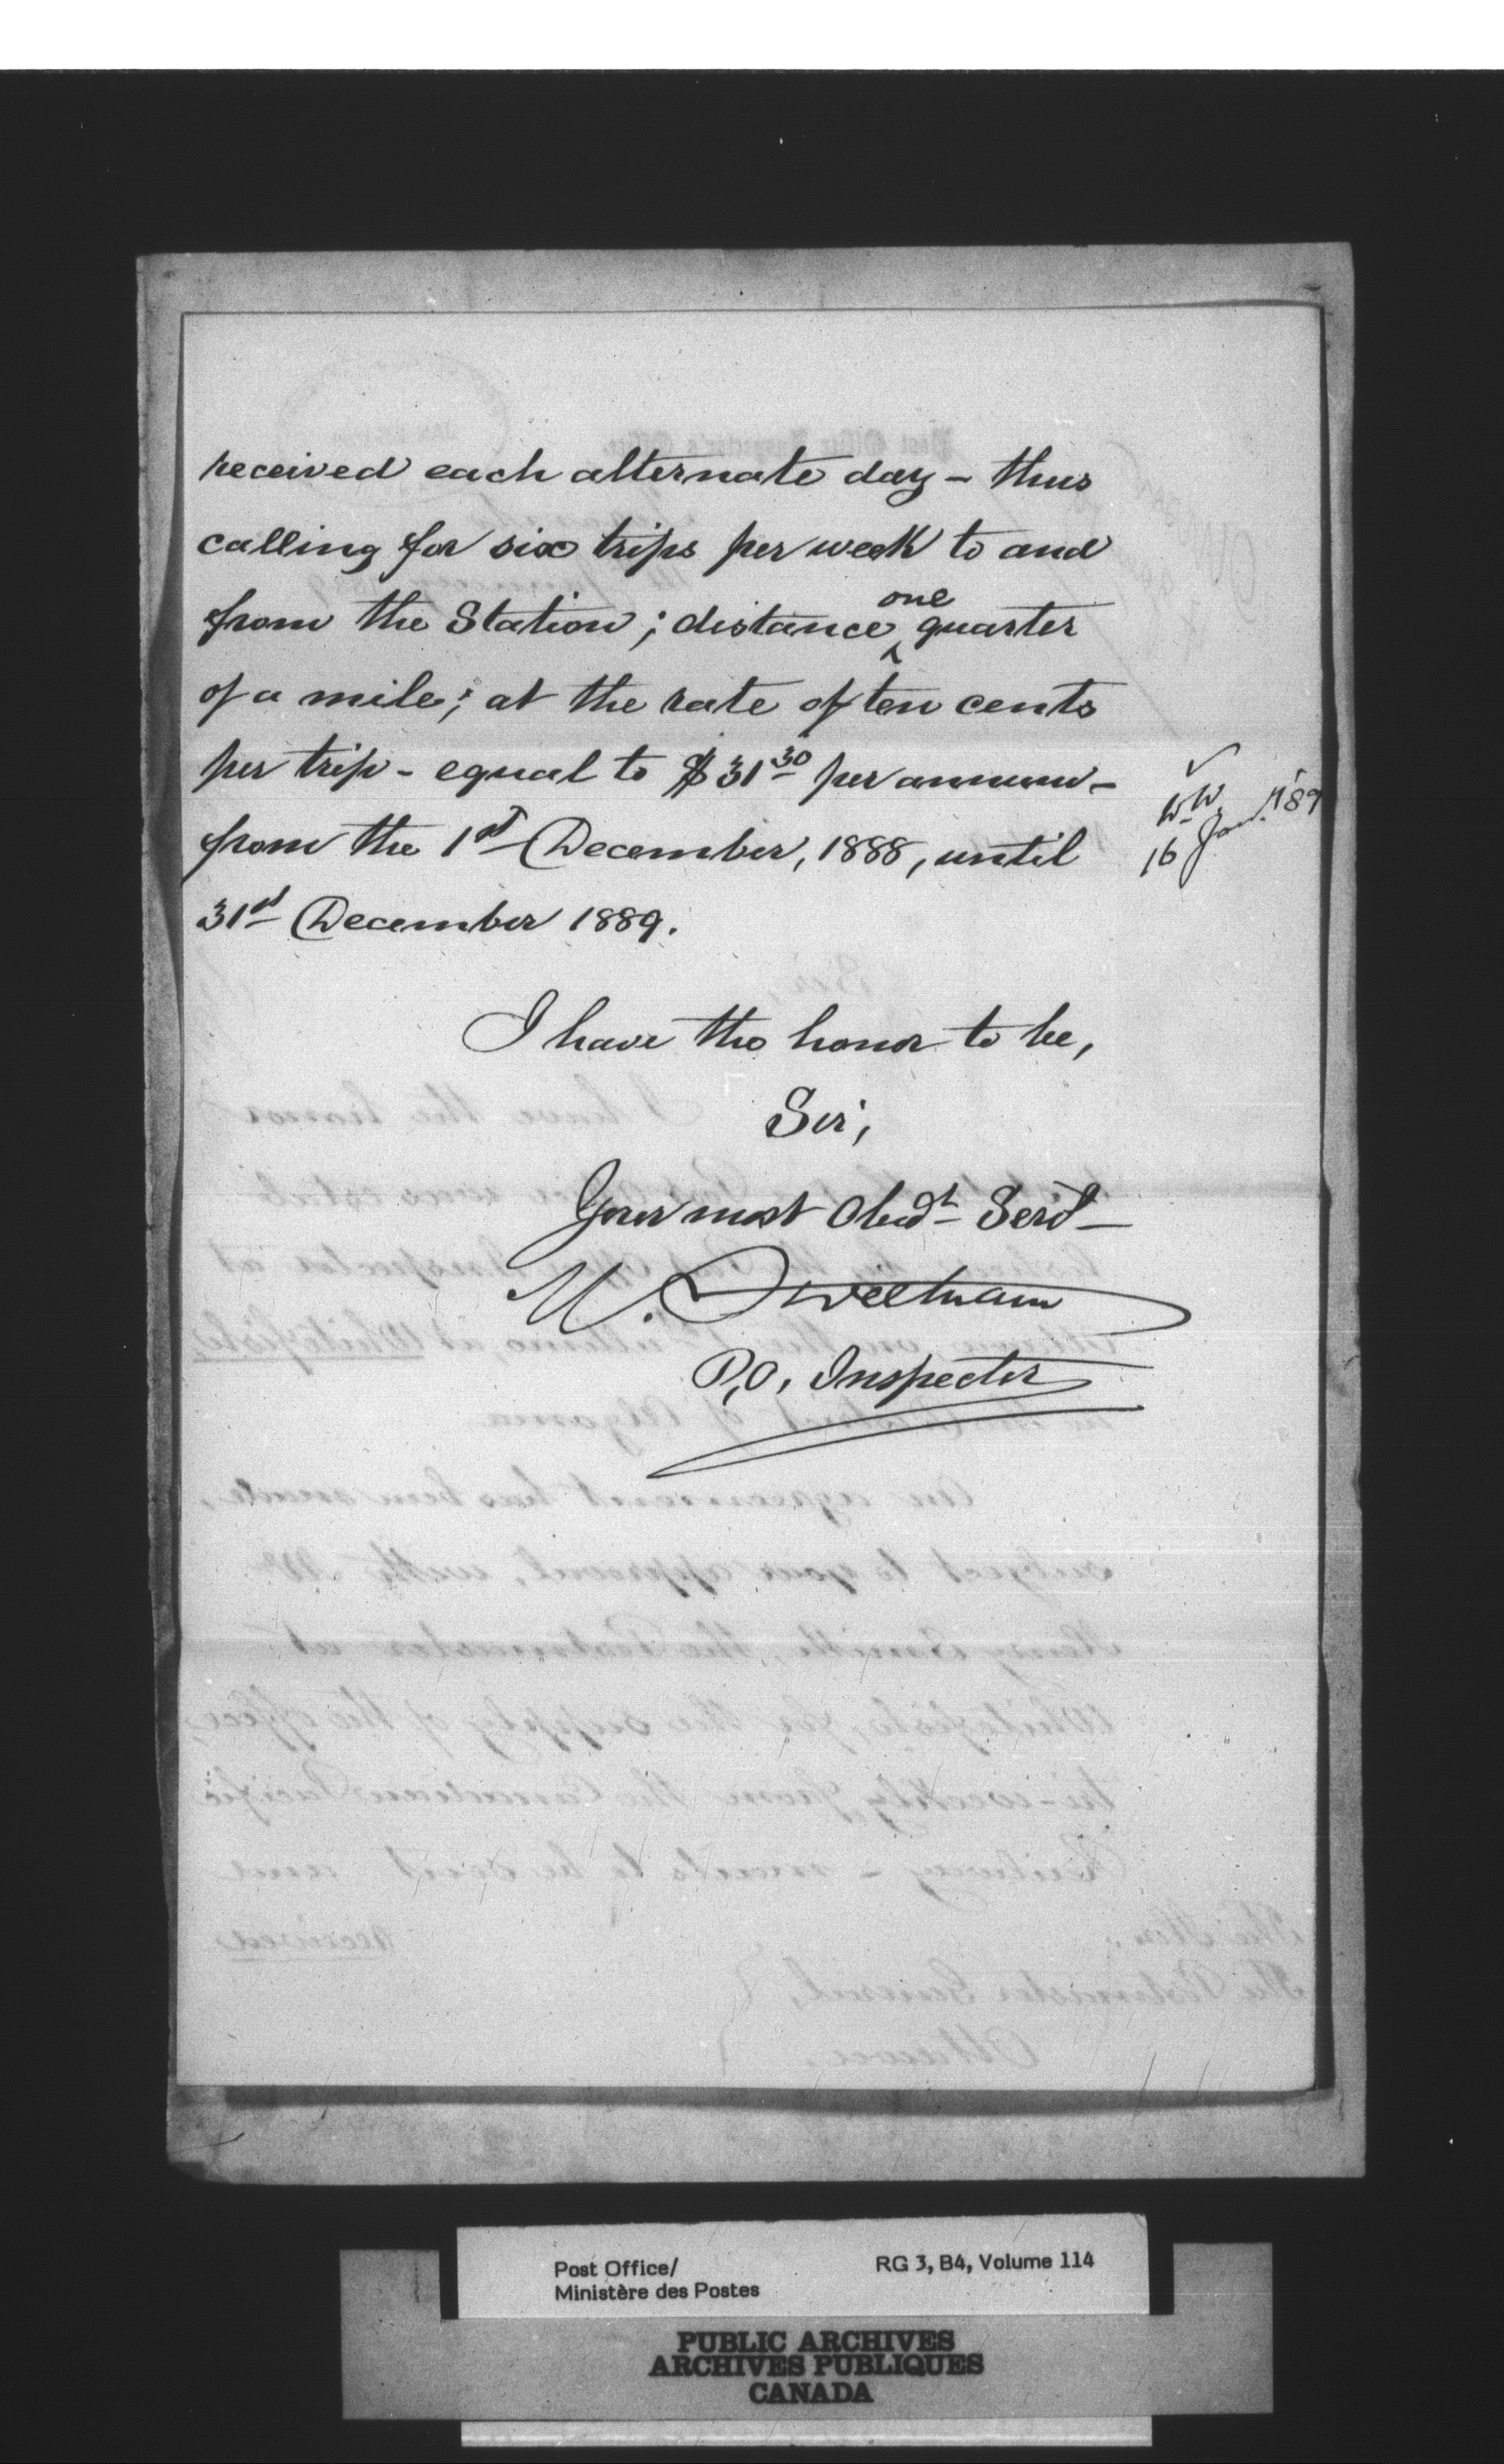 received each alternate day – thus
calling for six trips per week to and
from the Station; distance one quarter
of a mile; at the rate of ten cents
per trip – equal to $31 30 per annum –
from the 1st December, 1888, until
31st December 1889.
WW
16 Jan. '89
I have the honor to be,
Sir,
Your most Obedt Servt
M. Sweetnam
P.O. Inspector
Post Office/
Ministère des Postes
RG 3, B4, Volume 114
PUBLIC ARCHIVES
ARCHIVES PUBLIQUES
CANADA